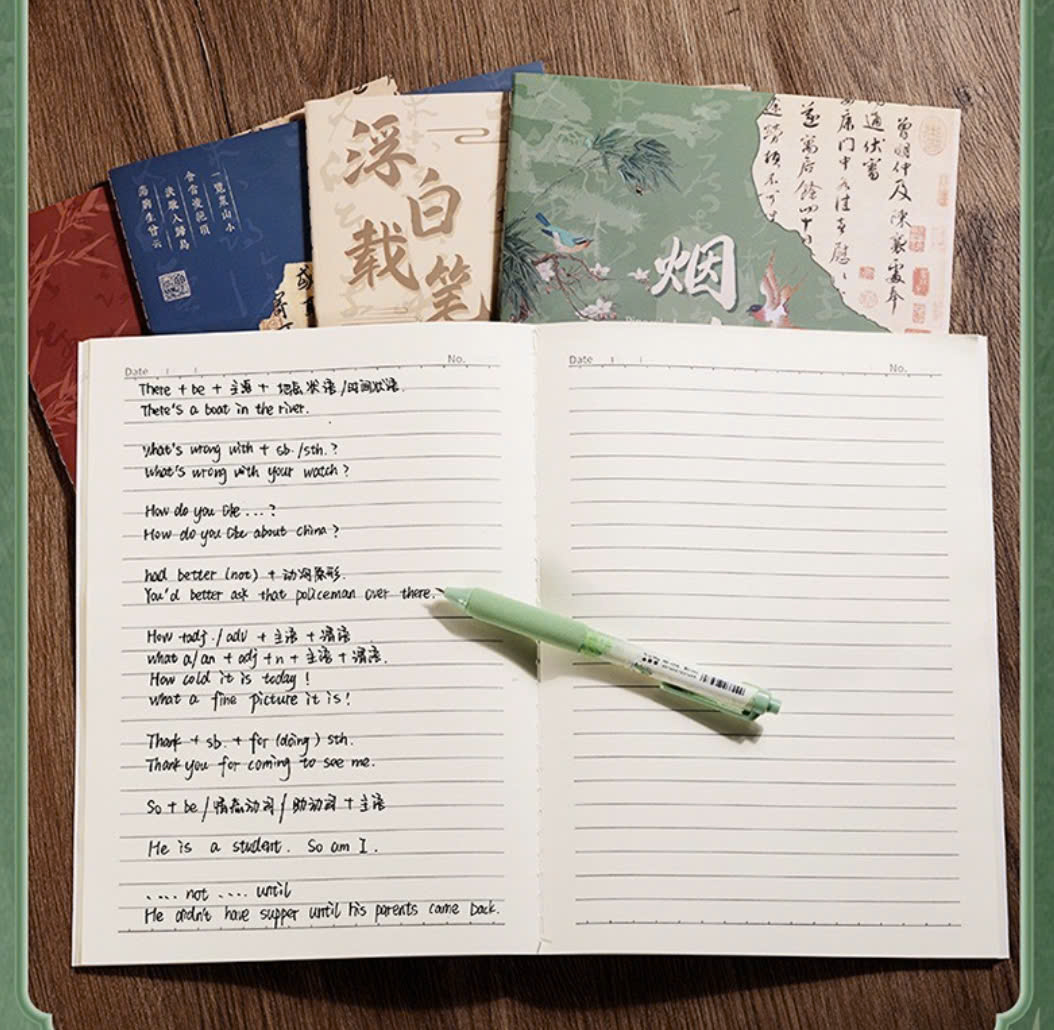 浮白载笔
烟
曾明仲及陳襄處卒
Date
No.
There + be + 主语 + 地点状语/时间状语.
There's a boat in the river.
What's wrong with + sb./sth.?
What's wrong with your watch?
How do you like ...?
How do you like about China?
had better (not) + 动词原形.
You'd better ask that policeman over there.
How +adj./adv + 主语 + 谓语
what a/an + adj +n + 主语 + 谓语.
How cold it is today!
what a fine picture it is!
Thank + sb. + for (doing) sth.
Thank you for coming to see me.
So + be/情态动词/助动词 + 主语
He is a student. So am I.
.... not .... until
He didn't have supper until his parents came back.
Date
No.